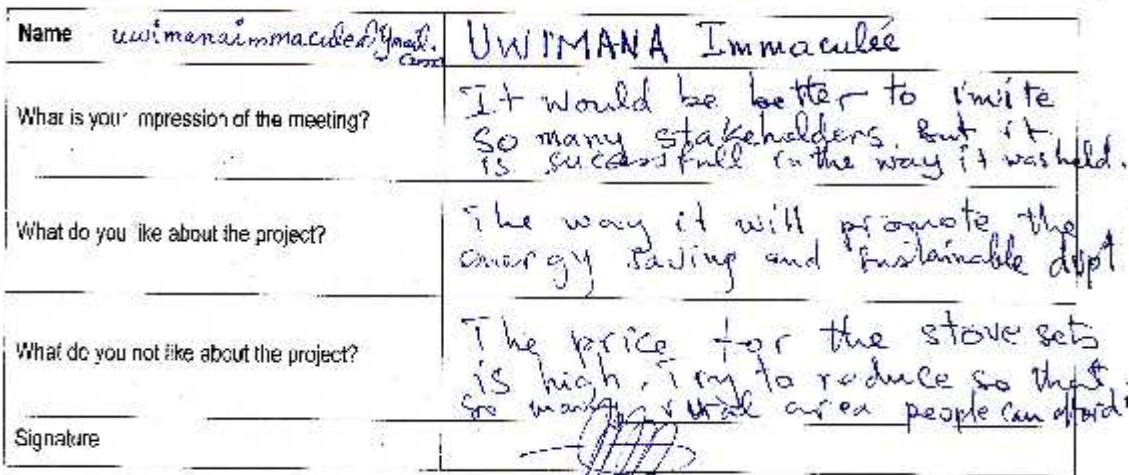 Name uwimanaimmaculee@gmail.com UWIMANA Immaculée
What is your impression of the meeting?
It would be better to invite
so many stakeholders but it
is successfull in the way it was held.
What do you like about the project?
The way it will promote the
energy saving and sustainable dvpt
What do you not like about the project?
The price for the stove sets
is high. Try to reduce so that
so many rural area people can afford it
Signature